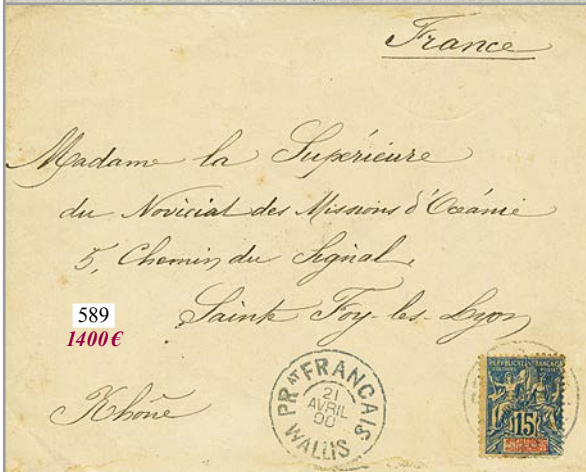 France
Madame la Supérieure
du Noviciat des Missions d'Océanie
5, Chemin du Signal
Sainte Foy-les-Lyon
589
1400€
Rhône
PRAT FRANCAIS
21
AVRIL
00
WALLIS
REPUBLIQUE FRANCAISE
COLONIES POSTES
15